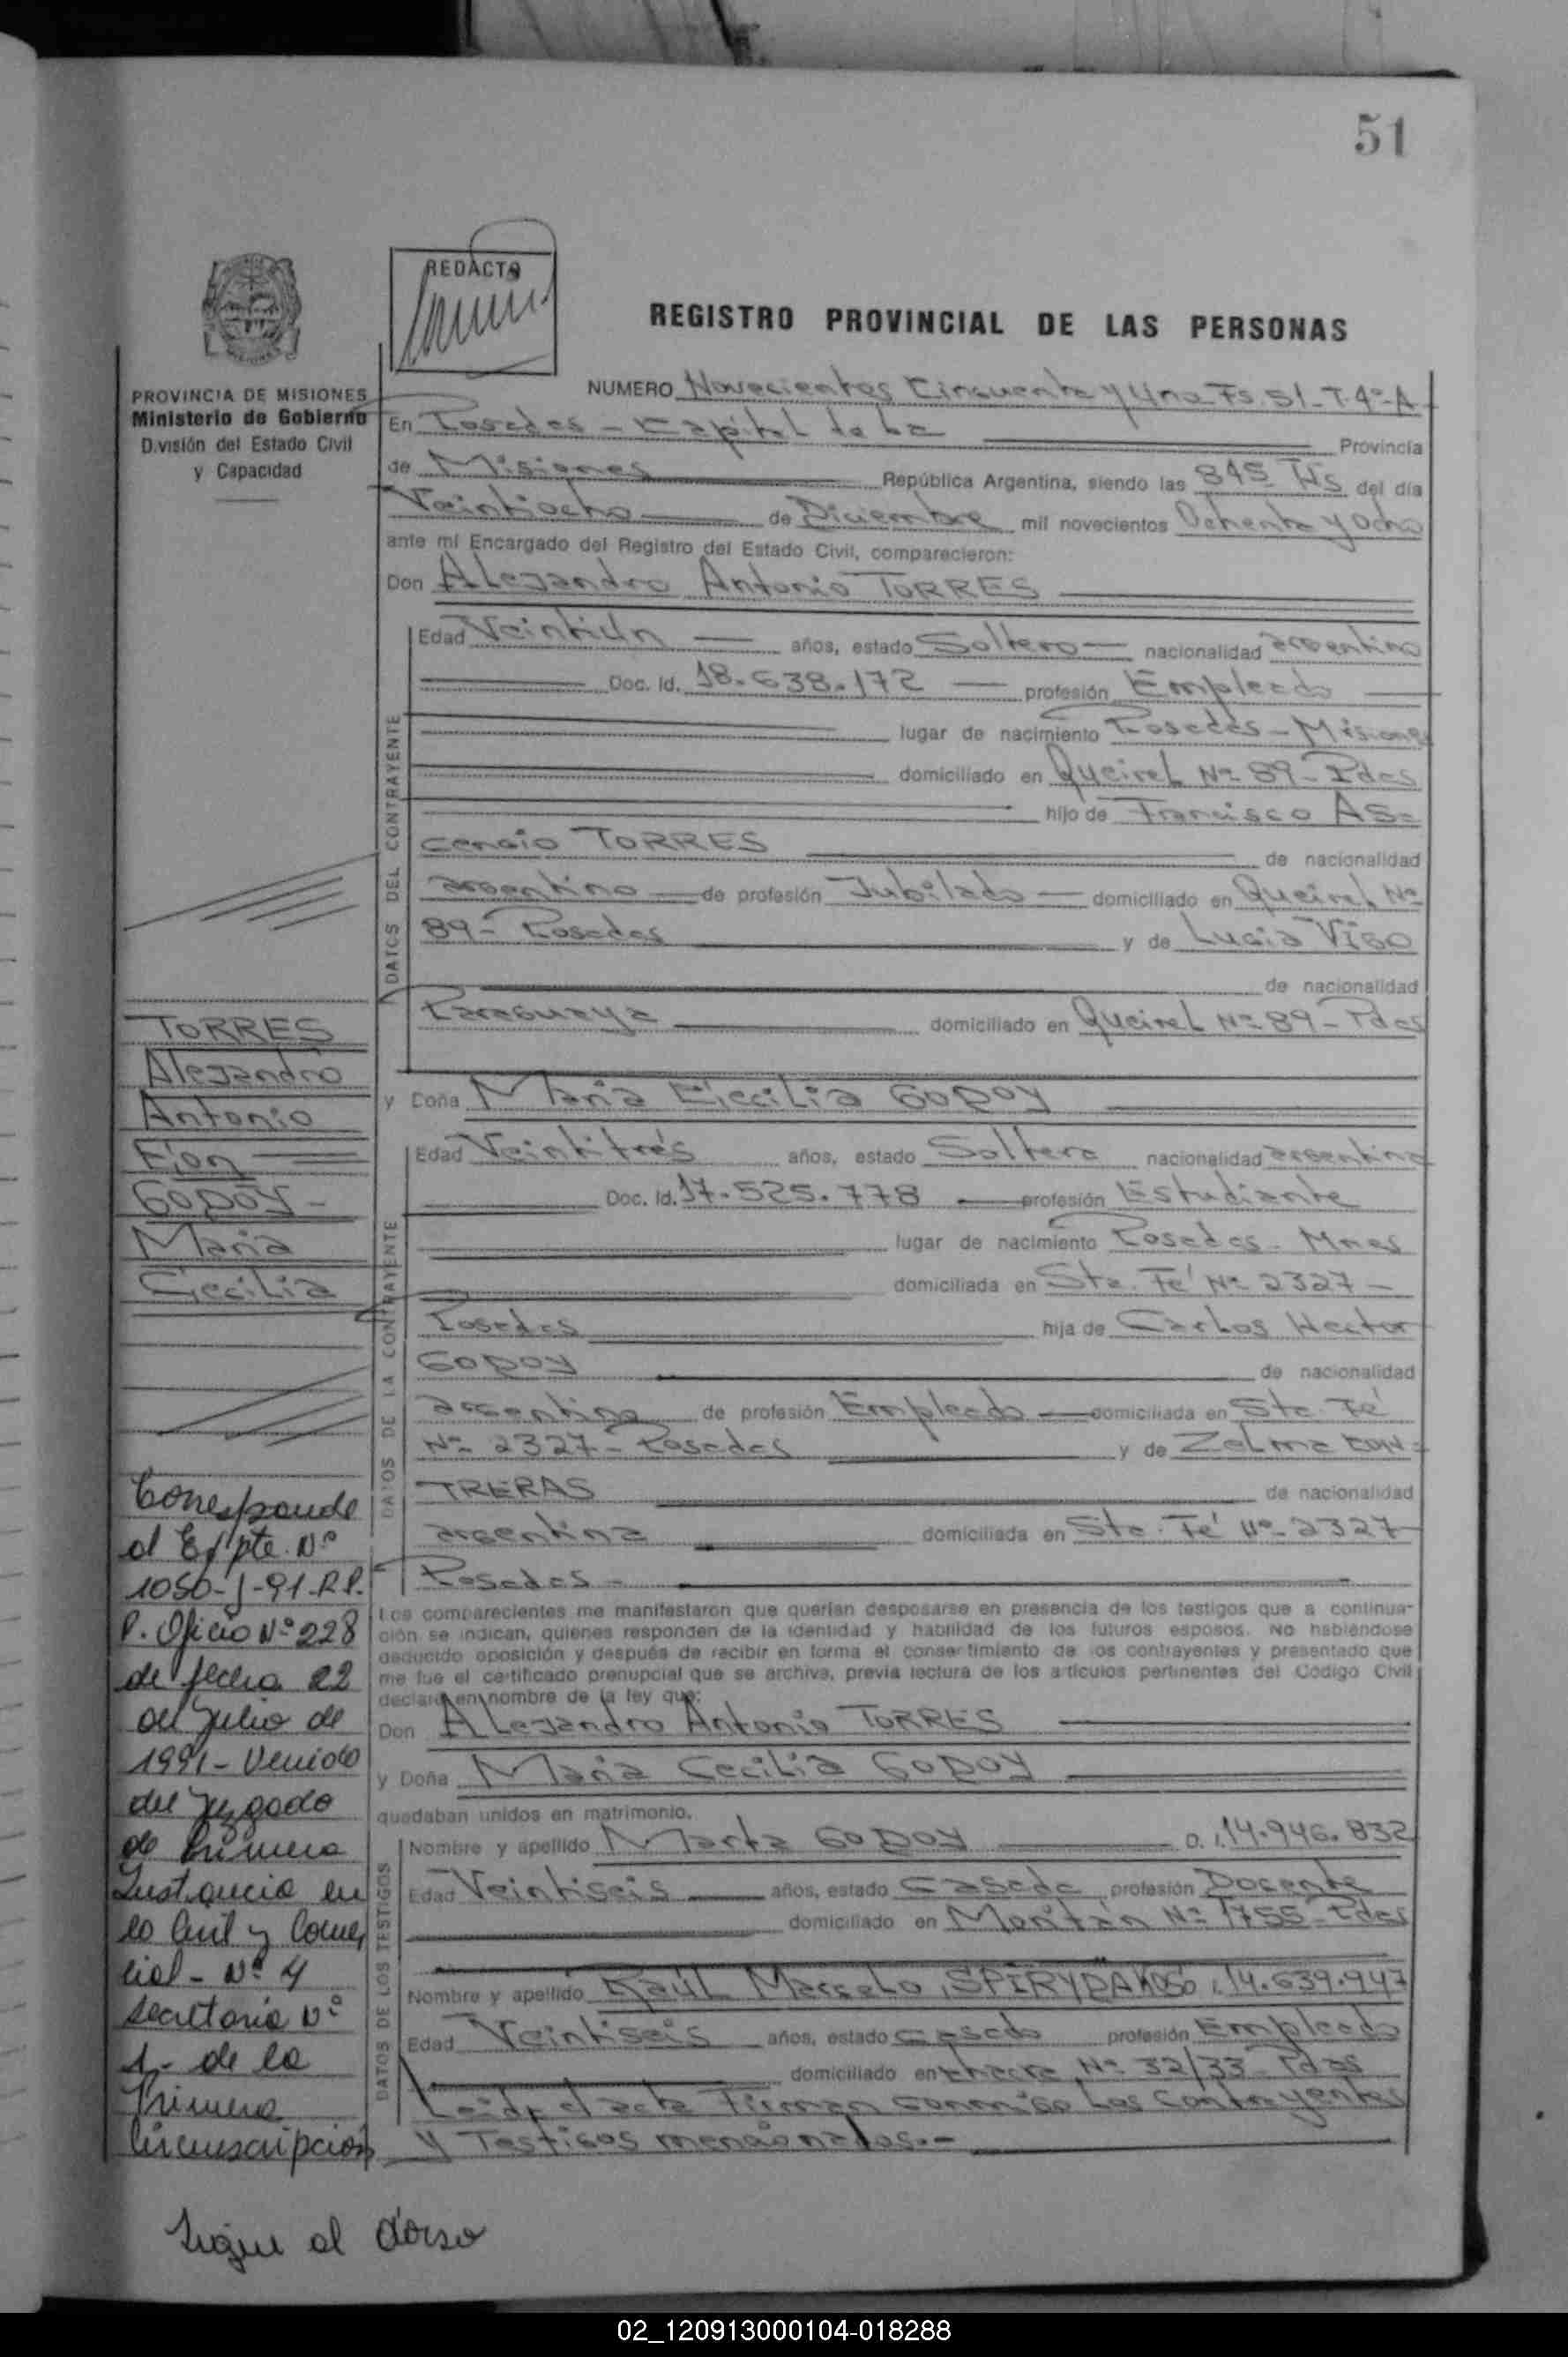 51
REDACTO
REGISTRO PROVINCIAL DE LAS PERSONAS
PROVINCIA DE MISIONES
Ministerio de Gobierno
D.visión del Estado Civil
y Capacidad
NUMERO Novecientos Cincuenta y Uno Fs. 51 - T. 4º - A
En Posadas - Capital de La Provincia
de Misiones República Argentina, siendo las 845 Hs del día
Veintiocho de Diciembre mil novecientos Ochenta y Ocho
ante mí Encargado del Registro del Estado Civil, comparecieron:
Don Alejandro Antonio TORRES
DATOS DEL CONTRAYENTE
Edad Veintiún años, estado Soltero nacionalidad argentino
Doc. Id. 18.638.172 profesión Empleado
lugar de nacimiento Posadas - Misiones
domiciliado en Queirel Nº 89 - Pdas
hijo de Francisco AS=
cencio TORRES de nacionalidad
argentino de profesión Jubilado domiciliado en Queirel Nº
89 - Posadas y de Lucia VIGO
de nacionalidad
Paraguaya domiciliado en Queirel Nº 89 - Pdas
y Doña María Cecilia GODOY
DATOS DE LA CONTRAYENTE
Edad Veintitrés años, estado Soltera nacionalidad argentina
Doc. Id. 17.525.778 profesión Estudiante
lugar de nacimiento Posadas - Mnes
domiciliada en Sta. Fé Nº 2327 -
Posadas hija de Carlos Hector
GODOY de nacionalidad
argentino de profesión Empleado domiciliada en Sta. Fé
Nº 2327 - Posadas y de Zelma CON=
TRERAS de nacionalidad
argentina domiciliada en Sta. Fé Nº 2327
Posadas -
Los comparecientes me manifestaron que querían desposarse en presencia de los testigos que a continua-
ción se indican, quienes responden de la identidad y habilidad de los futuros esposos. No habiéndose
deducido oposición y después de recibir en forma el consertimiento de los contrayentes y presentado que
me fue el certificado prenupcial que se archiva, previa lectura de los artículos pertinentes del Código Civil
declaro en nombre de la ley que:
Don Alejandro Antonio TORRES
y Doña María Cecilia GODOY
quedaban unidos en matrimonio.
DATOS DE LOS TESTIGOS
Nombre y apellido Marta GODOY D. I. 14.946.832
Edad Veintiseis años, estado Casada profesión Docente
domiciliado en Nº 1755 - Pdas
Nombre y apellido Raúl Marcelo SPIRYDANOS 14.639.947
Edad Veintiseis años, estado casado profesión Empleado
domiciliado en chacra Nº 32/33 - Pdas
Leida el acta Firman conmigo Los Contrayentes
y Testigos mencionados.-
TORRES
Alejandro
Antonio
Con
GODOY -
María
Cecilia
Corresponde
al Expte. Nº
1050-J-91-R.P.
P. Oficio Nº 228
de fecha 22
de Julio de
1991 - Venido
del Juzgado
de Primera
Instancia en
lo Civil y Comer
cial - Nº 4
Secretaria Nº
1 - de la
Primera
Circunscripcion
Sigue al dorso
02_120913000104-018288